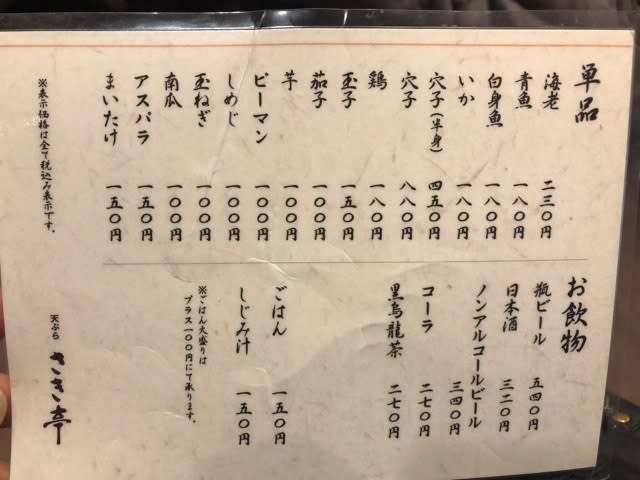 単品
海老 二三〇円
青魚 一八〇円
白身魚 一八〇円
いか 一八〇円
穴子(半身) 四五〇円
穴子 八八〇円
鶏 一八〇円
玉子 一五〇円
茄子 一〇〇円
芋 一〇〇円
ピーマン 一〇〇円
しめじ 一〇〇円
玉ねぎ 一〇〇円
南瓜 一〇〇円
アスパラ 一五〇円
まいたけ 一五〇円
※表示価格は全て税込み表示です。
お飲物
瓶ビール 五四〇円
日本酒 三二〇円
ノンアルコールビール 三四〇円
コーラ 二七〇円
黒烏龍茶 二七〇円
ごはん 一五〇円
しじみ汁 一五〇円
※ごはん大盛りは
プラス一〇〇円にて承ります。
天ぷら さき亭